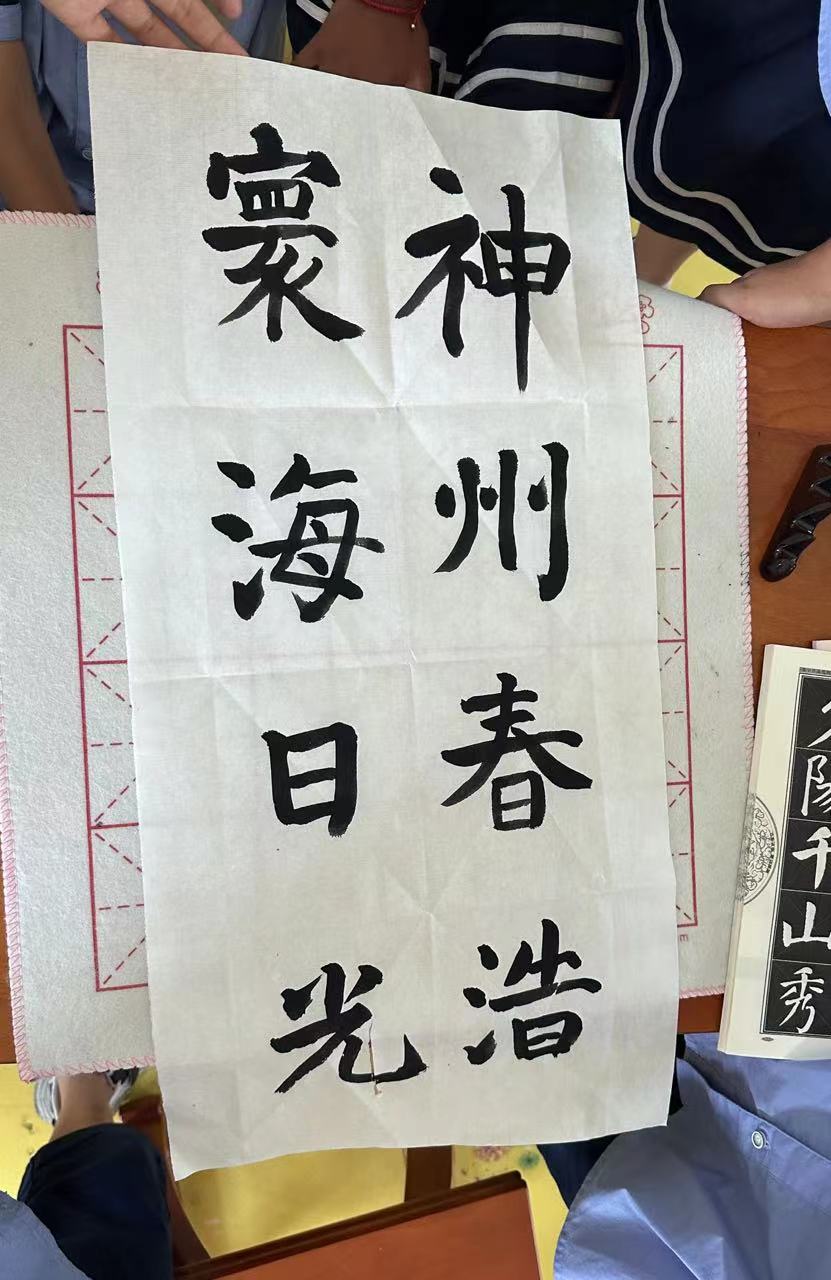 神州春浩
寰海日光
陽千山秀